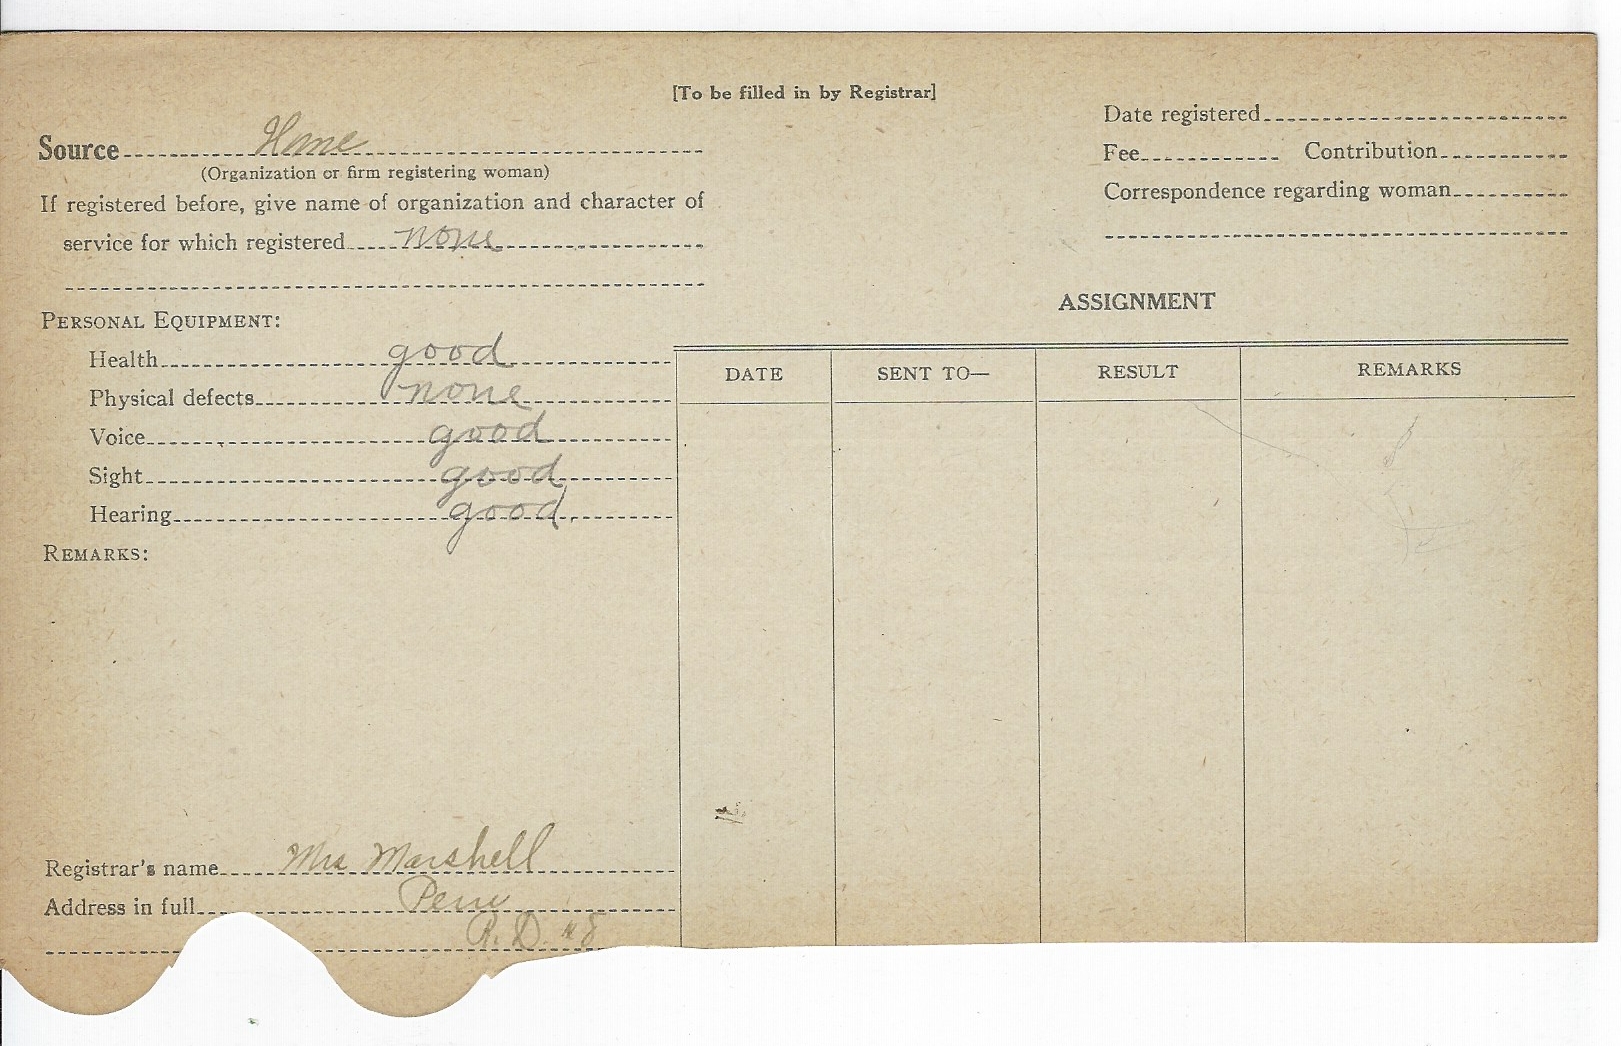 [To be filled in by Registrar]
Source Home
(Organization or firm registering woman)
If registered before, give name of organization and character of
service for which registered none
PERSONAL EQUIPMENT:
Health good
Physical defects none
Voice good
Sight good
Hearing good
REMARKS:
Registrar's name Mrs Marshell
Address in full Peru
R. D. #8
Date registered
Fee Contribution
Correspondence regarding woman
ASSIGNMENT
DATE SENT TO— RESULT REMARKS